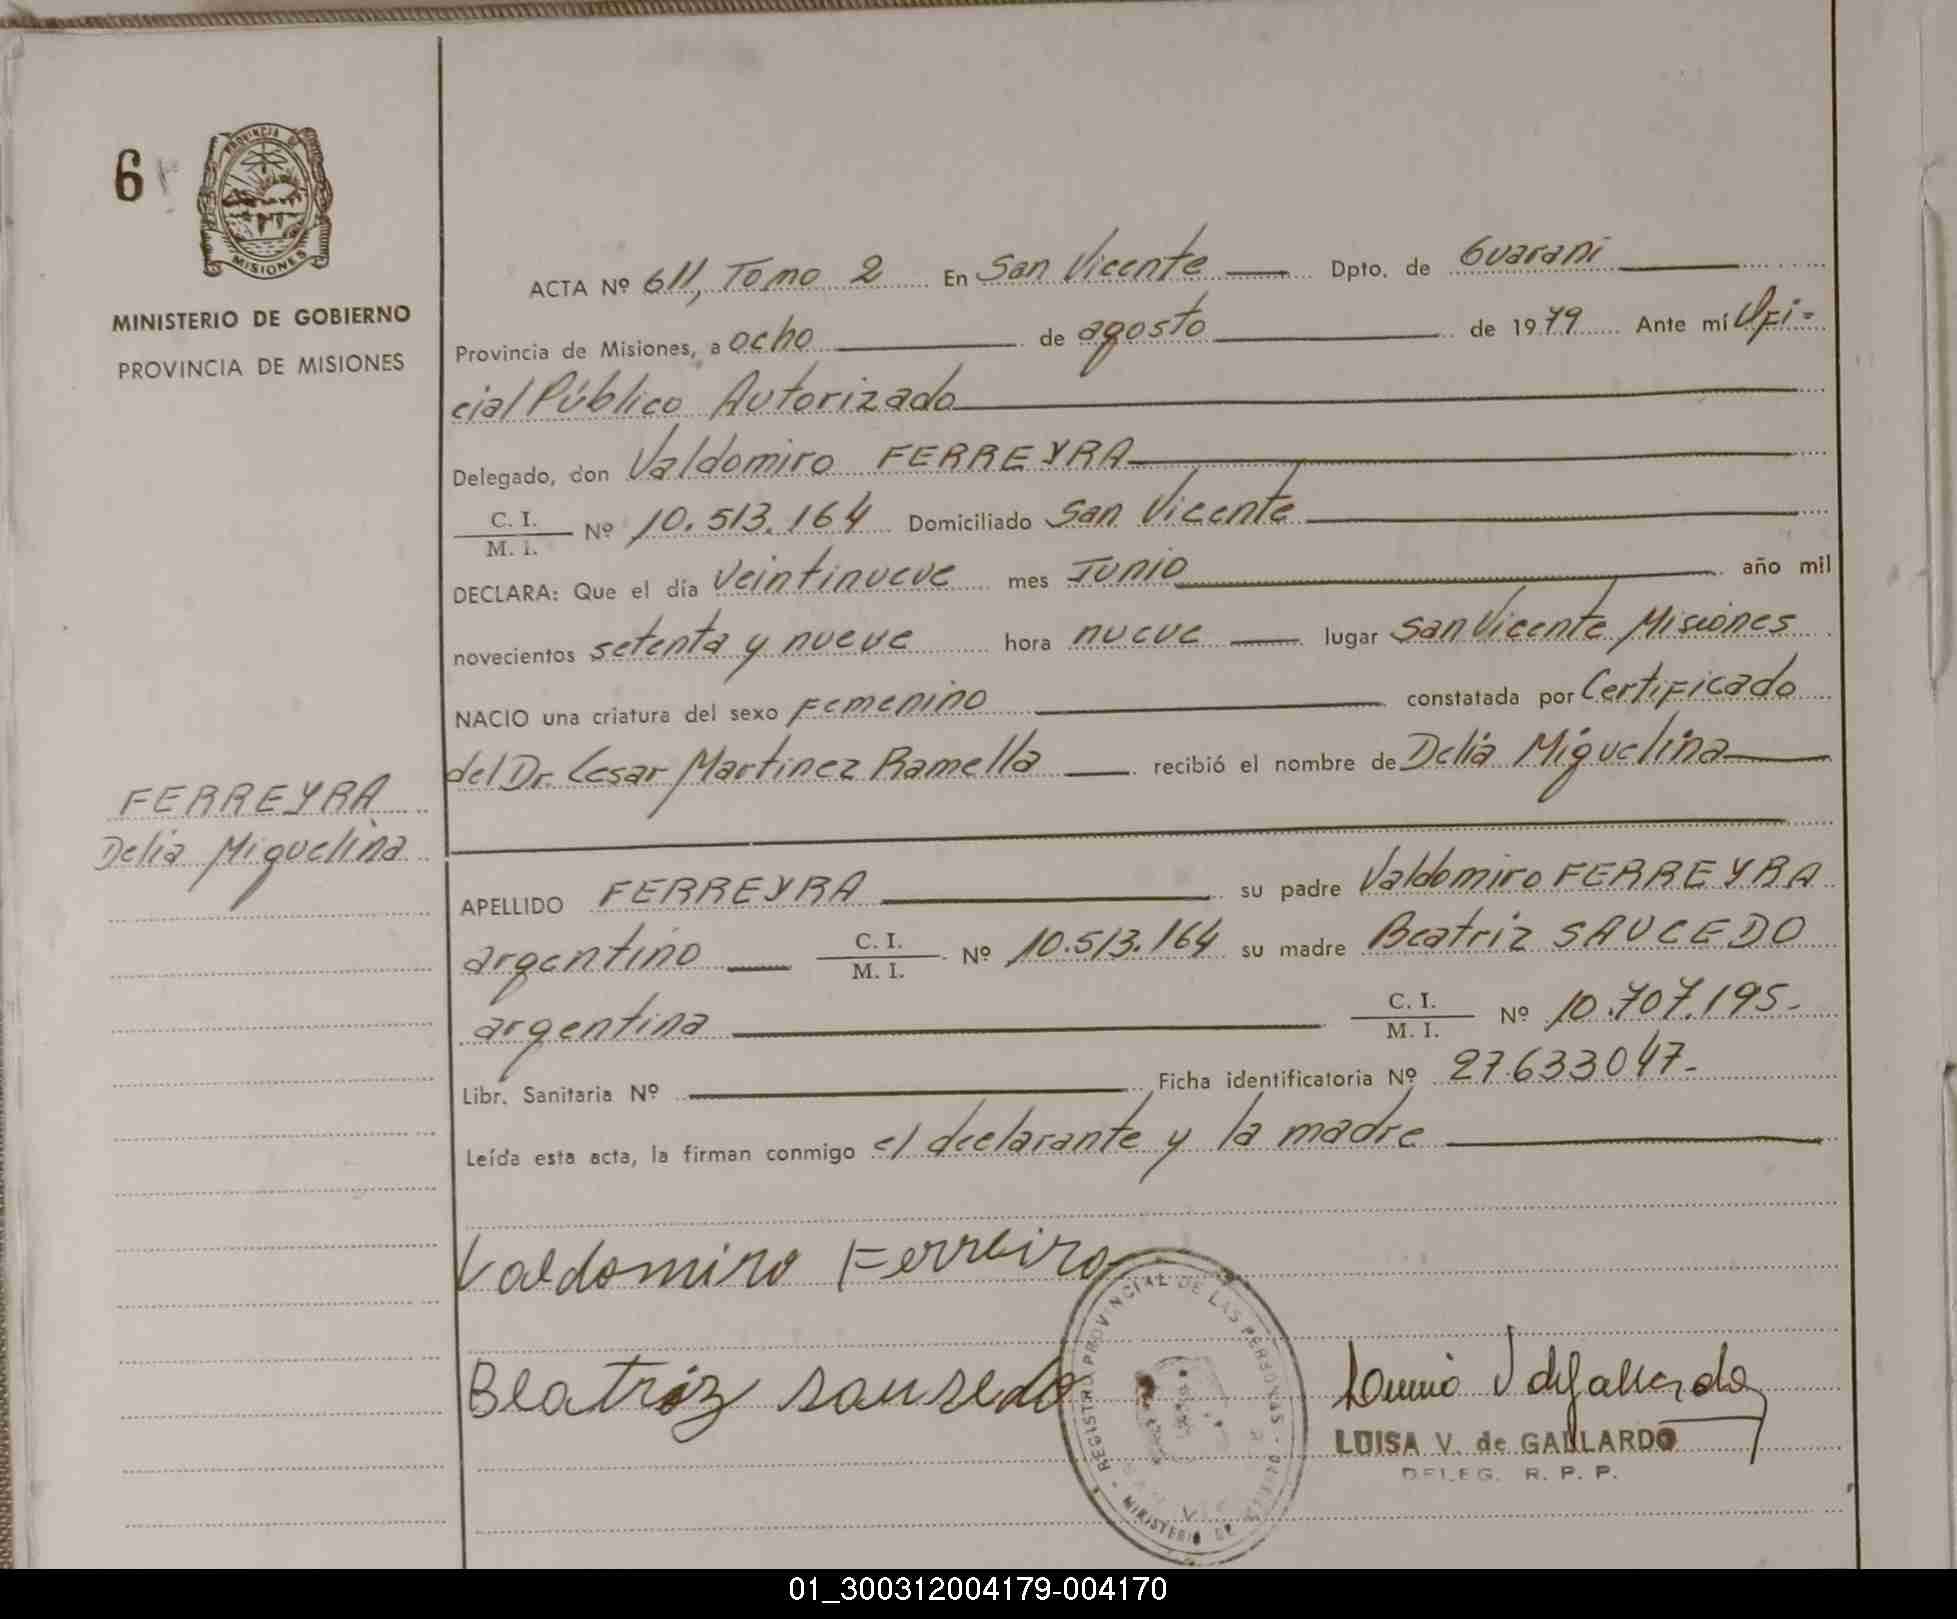 6
PROVINCIA DE
MISIONES
MINISTERIO DE GOBIERNO
PROVINCIA DE MISIONES
ACTA Nº 611, Tomo 2 En San Vicente Dpto. de Guarani
Provincia de Misiones, a ocho de agosto de 1979 Ante mí Ofi-
cial Público Autorizado
Delegado, don Valdomiro FERREYRA
C. I.
M. I. Nº 10.513.164 Domiciliado San Vicente
DECLARA: Que el día veintinueve mes Junio año mil
novecientos setenta y nueve hora nueve lugar San Vicente Misiones
NACIO una criatura del sexo Femenino constatada por Certificado
del Dr. Cesar Martinez Ramella recibió el nombre de Delia Miguelina
FERREYRA
Delia Miguelina
APELLIDO FERREYRA su padre Valdomiro FERREYRA
argentino C. I.
M. I. Nº 10.513.164 su madre Beatriz SAUCEDO
argentina C. I.
M. I. Nº 10.707.195-
Libr. Sanitaria Nº Ficha identificatoria Nº 27.633047-
Leída esta acta, la firman conmigo el declarante y la madre
Valdomiro Ferreira
Beatriz sausedo
REGISTRO PROVINCIAL DE LAS PERSONAS
MINISTERIO DE
LUISA V. de GALLARDO
DELEG. R. P. P.
01_300312004179-004170